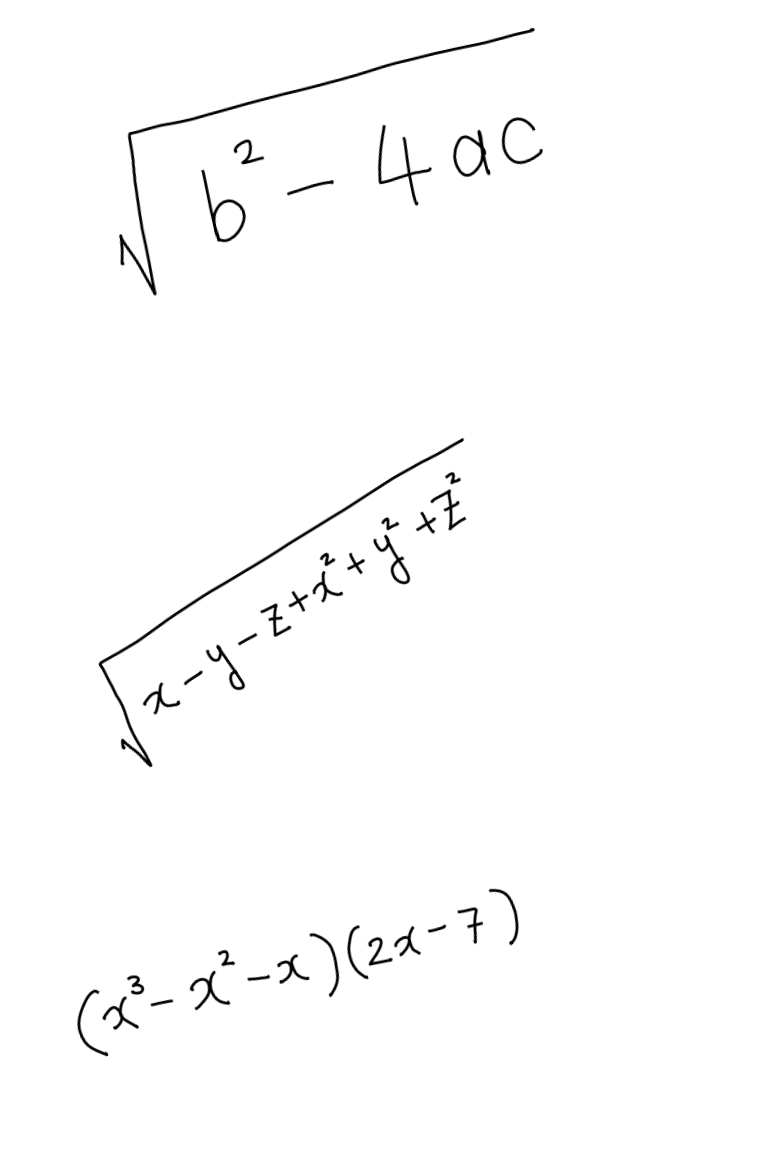 √(b² - 4ac)
√(x - y - z + x² + y² + z²)
(x³ - x² - x)(2x - 7)